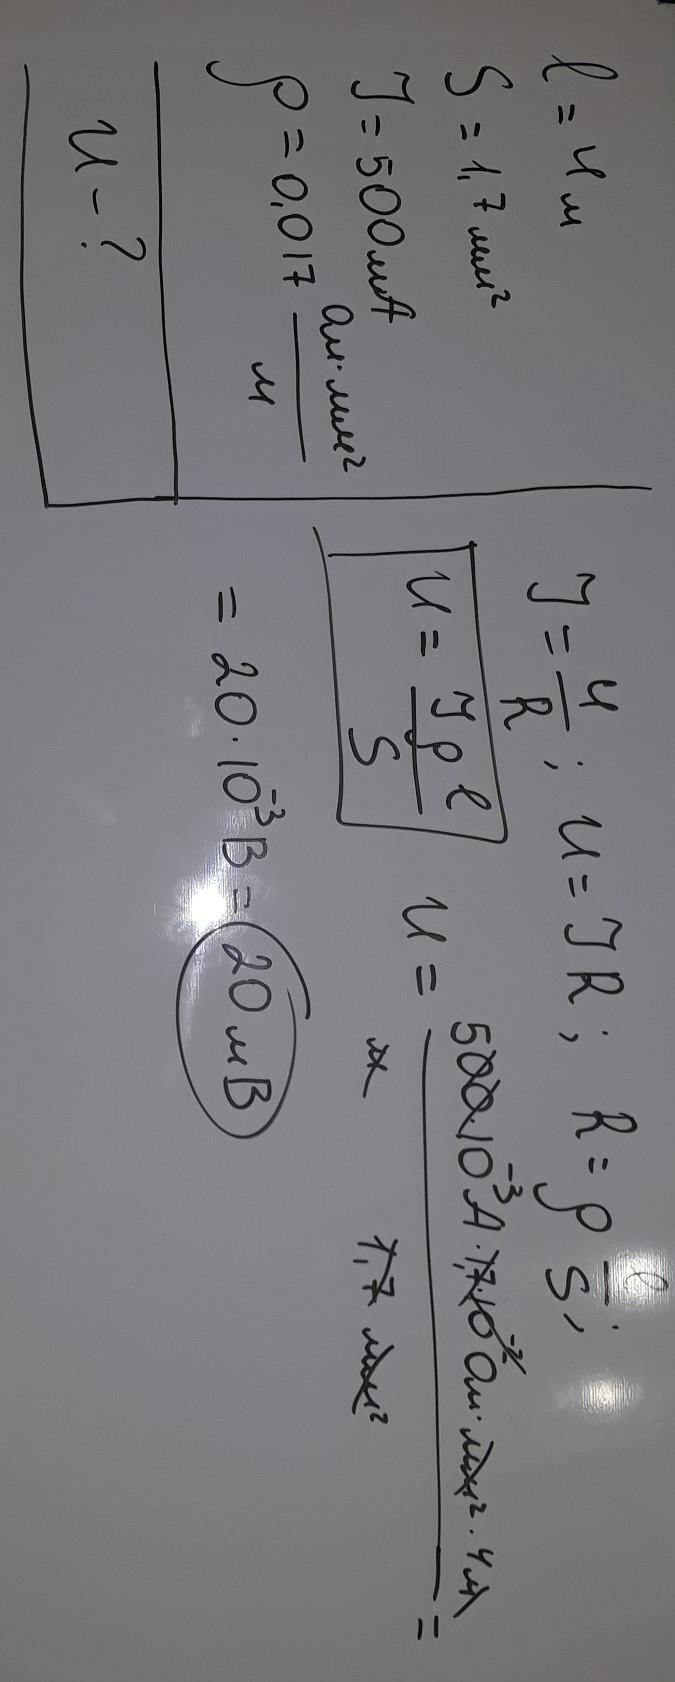 l = 4м
S = 1,7 мм²
J = 500мА
ρ = 0,017 Ом·мм²/м
U - ?
J = U/R ; U = JR ; R = ρ l/S ;
U = Jρl/S U = 500·10⁻³А·1,7·10⁻²Ом·мм²·4м / м 1,7 мм² =
= 20·10⁻³В = 20мВ